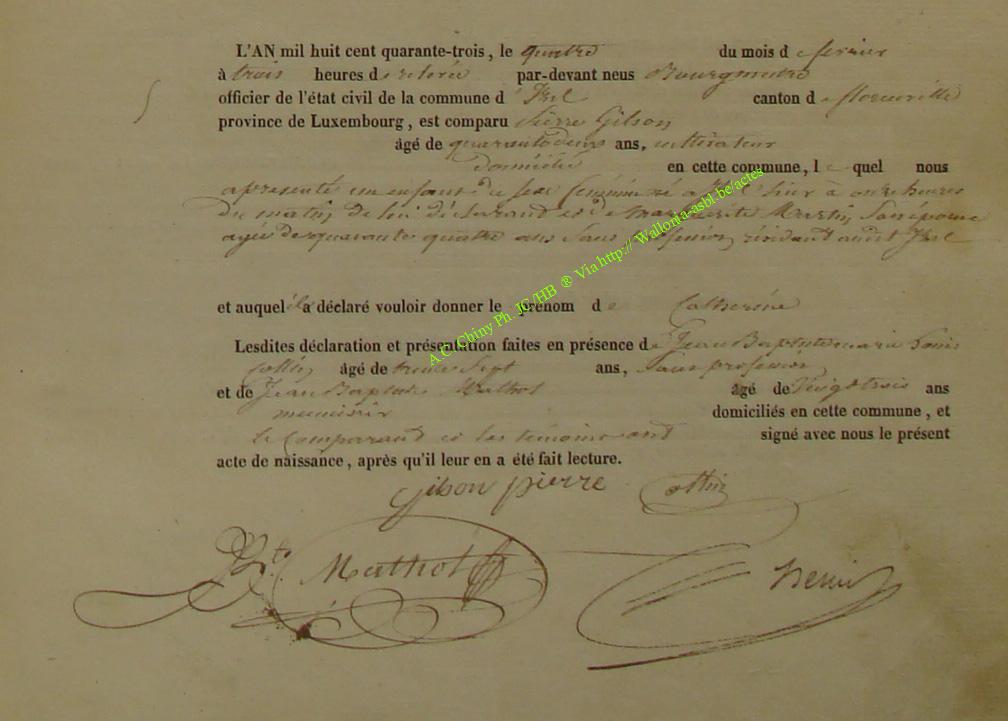 L'AN mil huit cent quarante-trois, le quatre du mois de fevrier
à trois heures de relevée par-devant nous Bourgmestre
officier de l'état civil de la commune d'Izel canton de florenville
province de Luxembourg, est comparu Pierre Gilson
âgé de quarante deux ans, cultivateur
domicilié en cette commune, lequel nous
a présenté un enfant du sexe féminin né a Izel hier à onze heures
du matin de lui déclarant et de Marguerite Martin son épouse
agée de quarante quatre ans sans profession résidant audit Izel
et auquel il a déclaré vouloir donner le prénom de Catherine
Lesdites déclaration et présentation faites en présence de Jean Baptiste marie Louis
âgé de trente sept ans, sans profession
et de Jean Baptiste Mathot âgé de vingt trois ans
menuisier domiciliés en cette commune, et
le Comparant et les témoins ont signé avec nous le présent
acte de naissance, après qu'il leur en a été fait lecture.
gilson pierre
Bte. Mathot
A.C. Chiny Ph. JC/HB ® Via http://Wallonia-asbl.be/actes